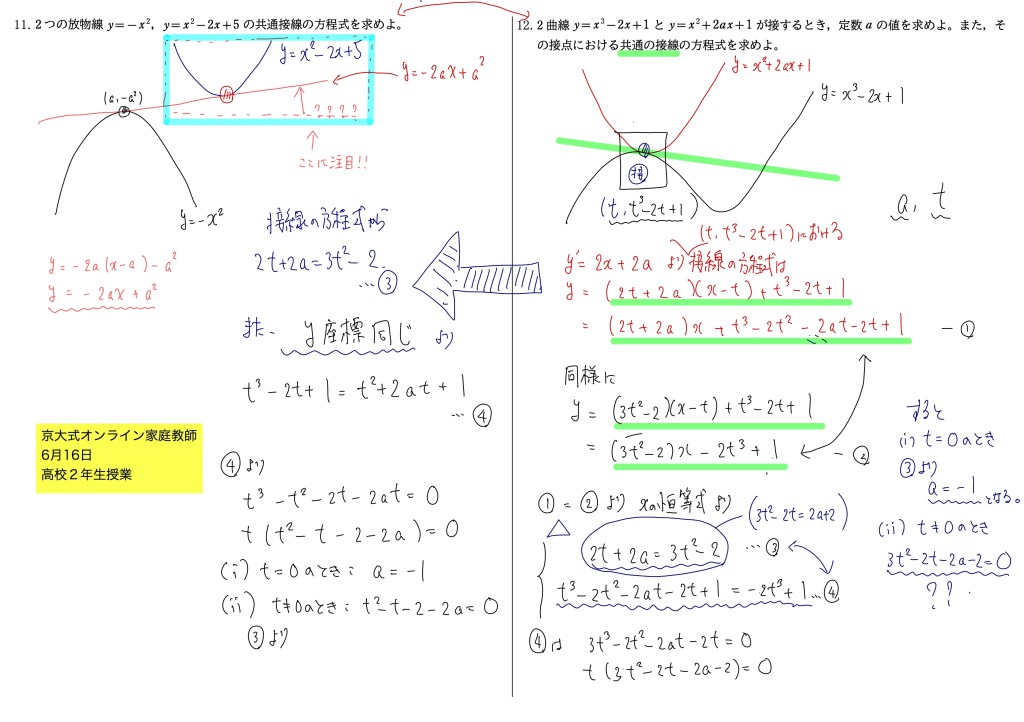 11. 2つの放物線 y=−x²，y=x²−2x+5 の共通接線の方程式を求めよ。
y=x²−2x+5
y=−2ax+a²
(a,−a²)
????
ここに注目!!
y=−x²
y=−2a(x−a)−a²
y=−2ax+a²
接線の方程式から
2t+2a=3t²−2
…③
また、y座標同じ より
t³−2t+1=t²+2at+1
…④
京大式オンライン家庭教師
6月16日
高校２年生授業
④より
t³−t²−2t−2at=0
t(t²−t−2−2a)=0
(i) t=0のとき： a=−1
(ii) t≠0のとき： t²−t−2−2a=0
③より
12. 2曲線 y=x³−2x+1 と y=x²+2ax+1 が接するとき，定数 a の値を求めよ。また，そ
の接点における共通の接線の方程式を求めよ。
y=x²+2ax+1
y=x³−2x+1
接
(t, t³−2t+1)
a, t
(t, t³−2t+1)における
y'=2x+2a より接線の方程式は
y=(2t+2a)(x−t)+t³−2t+1
=(2t+2a)x+t³−2t²−2at−2t+1 −①
同様に
y=(3t²−2)(x−t)+t³−2t+1
=(3t²−2)x−2t³+1 −②
①=②より xの恒等式より
(3t²−2t=2a+2)
2t+2a=3t²−2 …③
t³−2t²−2at−2t+1=−2t³+1 …④
④は 3t³−2t²−2at−2t=0
t(3t²−2t−2a−2)=0
すると
(i) t=0のとき
③より
a=−1 となる。
(ii) t≠0のとき
3t²−2t−2a−2=0
??.